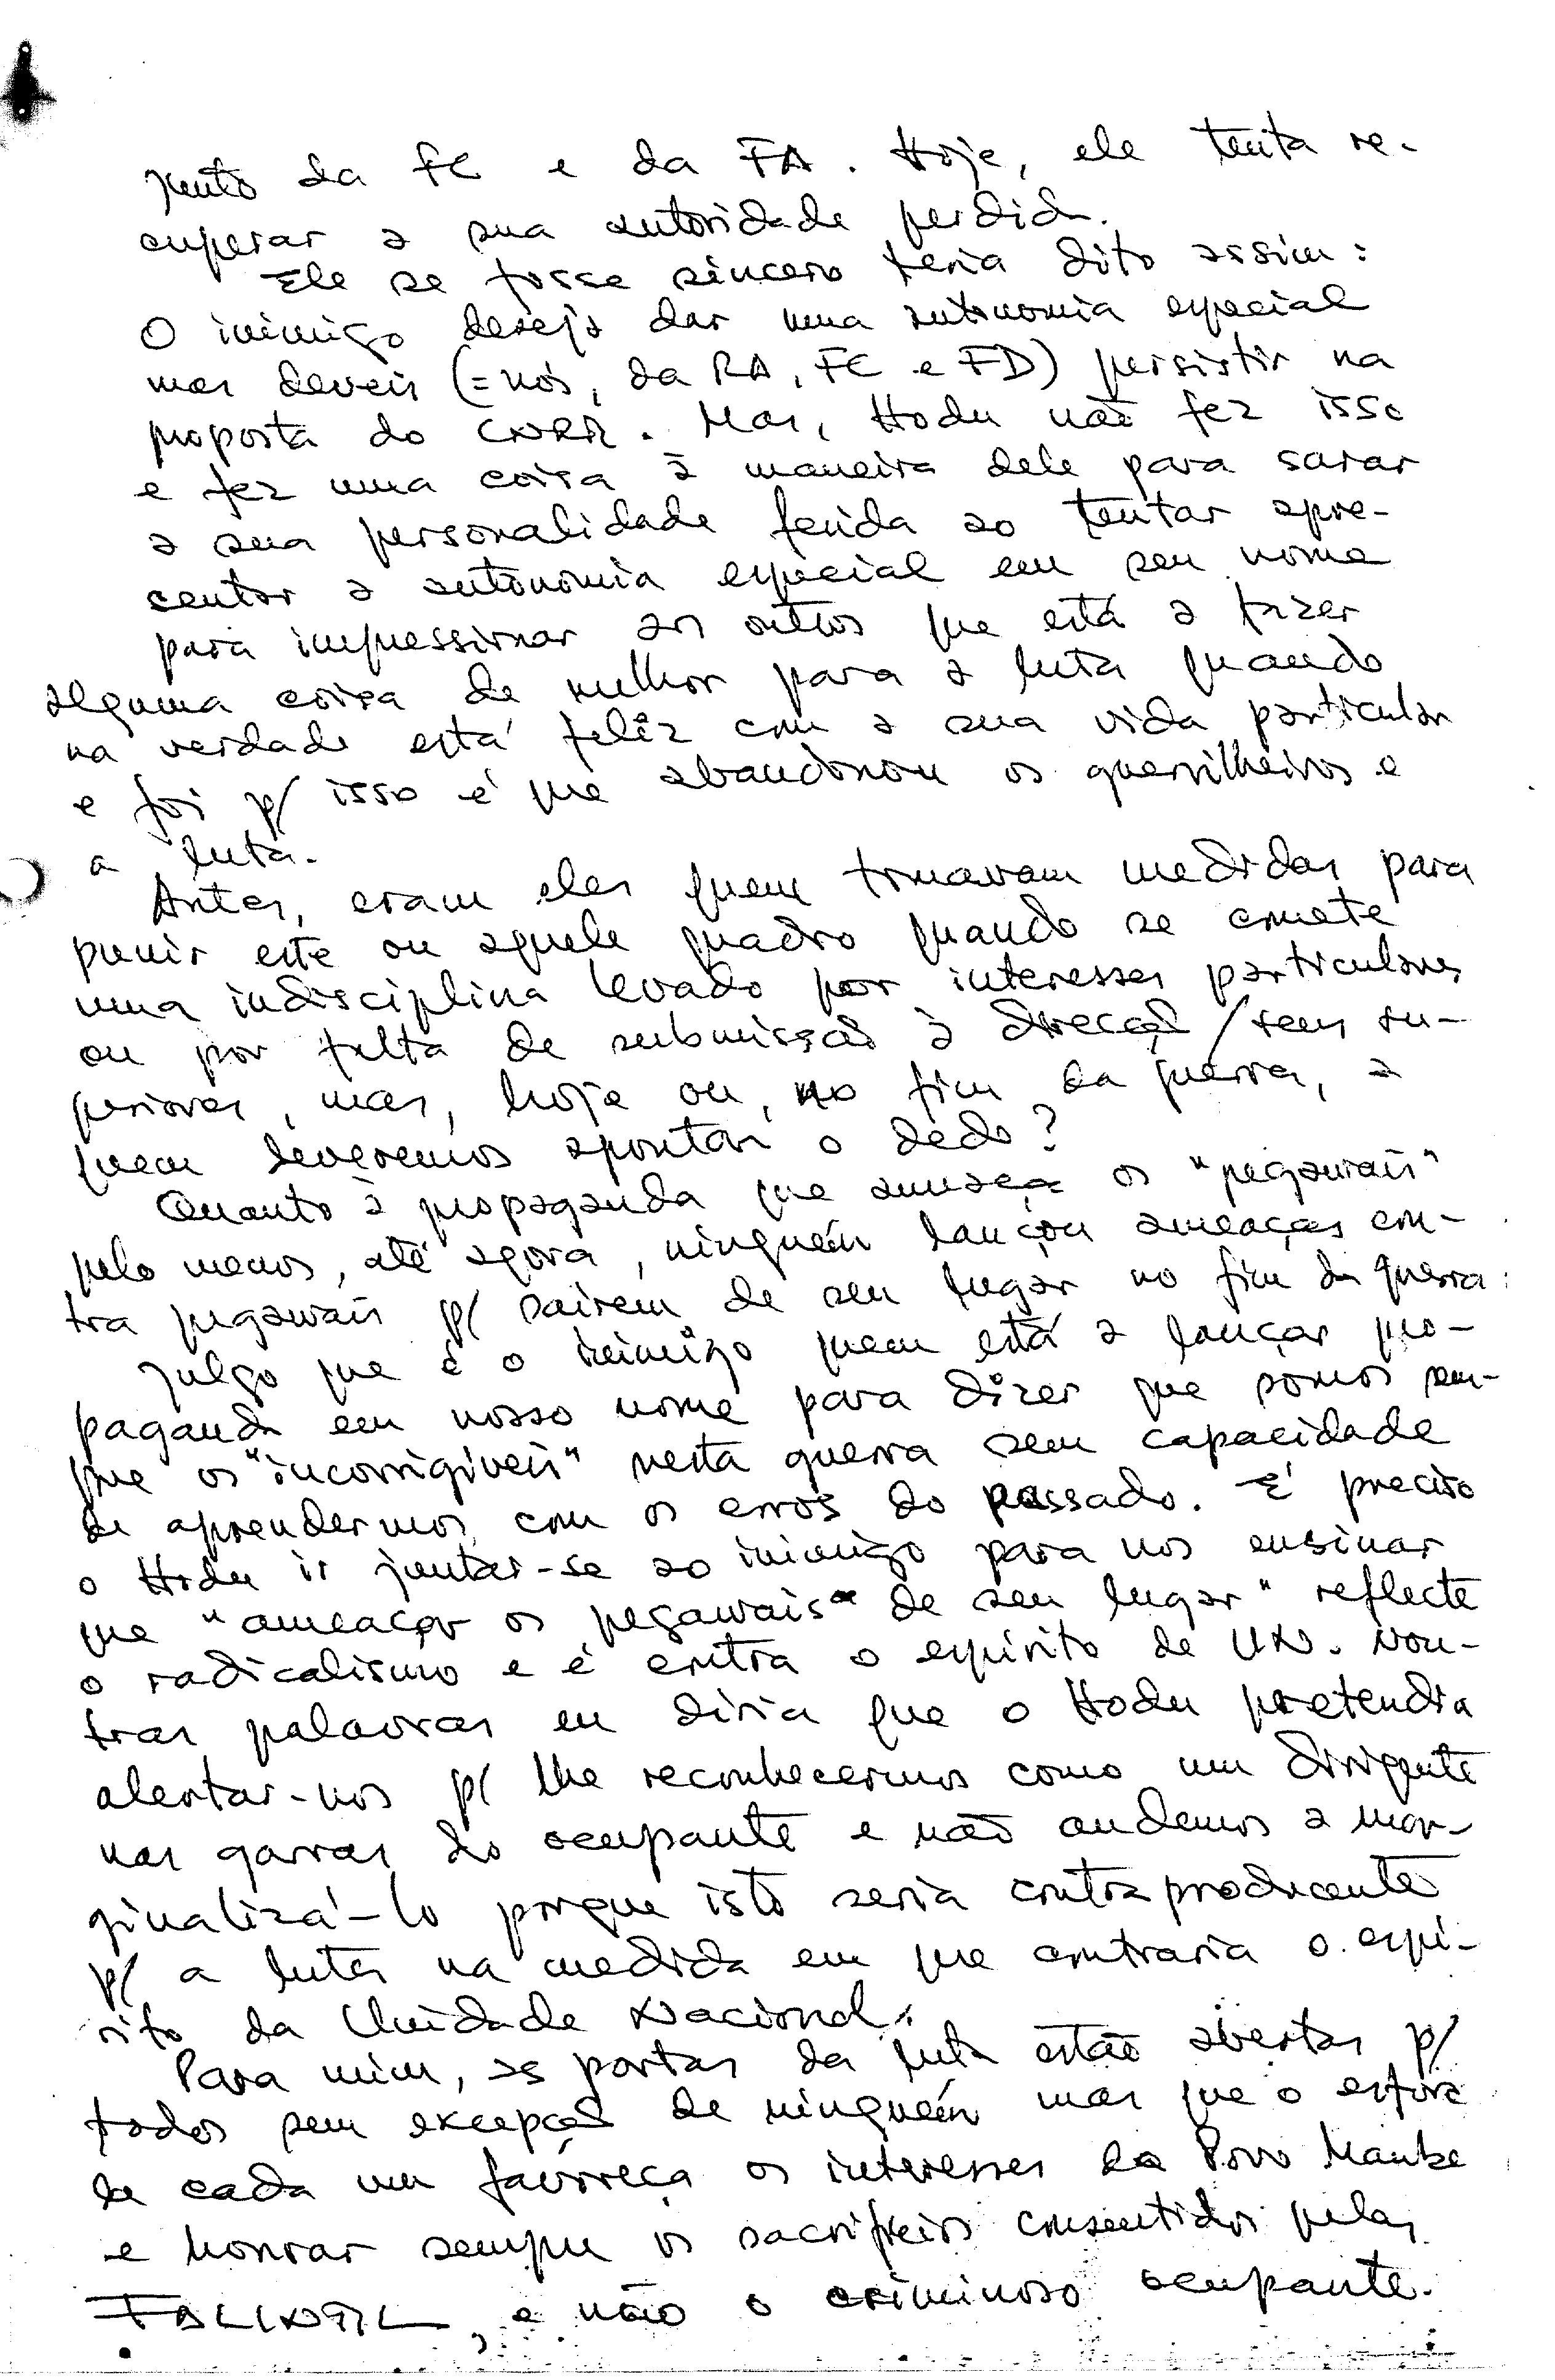 junto da FC e da FA. Hoje, ele tenta re-
cuperar a sua autoridade perdida.
Ele se fosse sincero teria dito assim:
O inimigo deseja dar uma autonomia especial
mas deveis (=nós, da RA, FC e FD) persistir na
proposta do CNRM. Mas, Hodu não fez isso
e fez uma coisa à maneira dele para sarar
a sua personalidade ferida ao tentar apre-
sentar a autonomia especial em seu nome
para impressionar aos outros que está a fazer
alguma coisa de melhor para a luta quando
na verdade está felíz com a sua vida particular
e foi p/ isso é que abandonou os guerrilheiros e
a luta.
Antes, eram eles quem tomavam medidas para
punir este ou aquele quadro quando se comete
uma indisciplina levado por interesses particulares
ou por falta de submissão à direcção/seus su-
periores, mas, hoje ou, no fim da guerra, a
quem deveremos apontar o dedo?
Quanto à propaganda que ameaça os "pegawais"
pelo menos, até agora, ninguém lançou ameaças con-
tra pegawais p/ sairem de seu lugar no fim da guerra.
Julgo que é o inimigo quem está a lançar pro-
paganda em nosso nome para dizer que somos sem-
pre os "incorrigíveis" nesta guerra sem capacidade
de aprendermos com os erros do passado. É preciso
o Hodu ir juntar-se ao inimigo para nos ensinar
que "ameaçar os pegawais de seu lugar" reflecte
o radicalismo e é contra o espírito de UN. Nou-
tras palavras eu diria que o Hodu pretendia
alertar-nos p/ lhe reconhecermos como um dirigente
nas garras do ocupante e não andemos a mar-
ginalizá-lo porque isto seria contraproducente
p/ a luta na medida em que contraria o espí-
rito da Unidade Nacional.
Para mim, as portas da luta estão abertas p/
todos sem excepção de ninguém mas que o esforço
de cada um favoreça os interesses do Povo Maubere
e honrar sempre os sacrifícios consentidos pelas
FALINTIL, e não o criminoso ocupante.